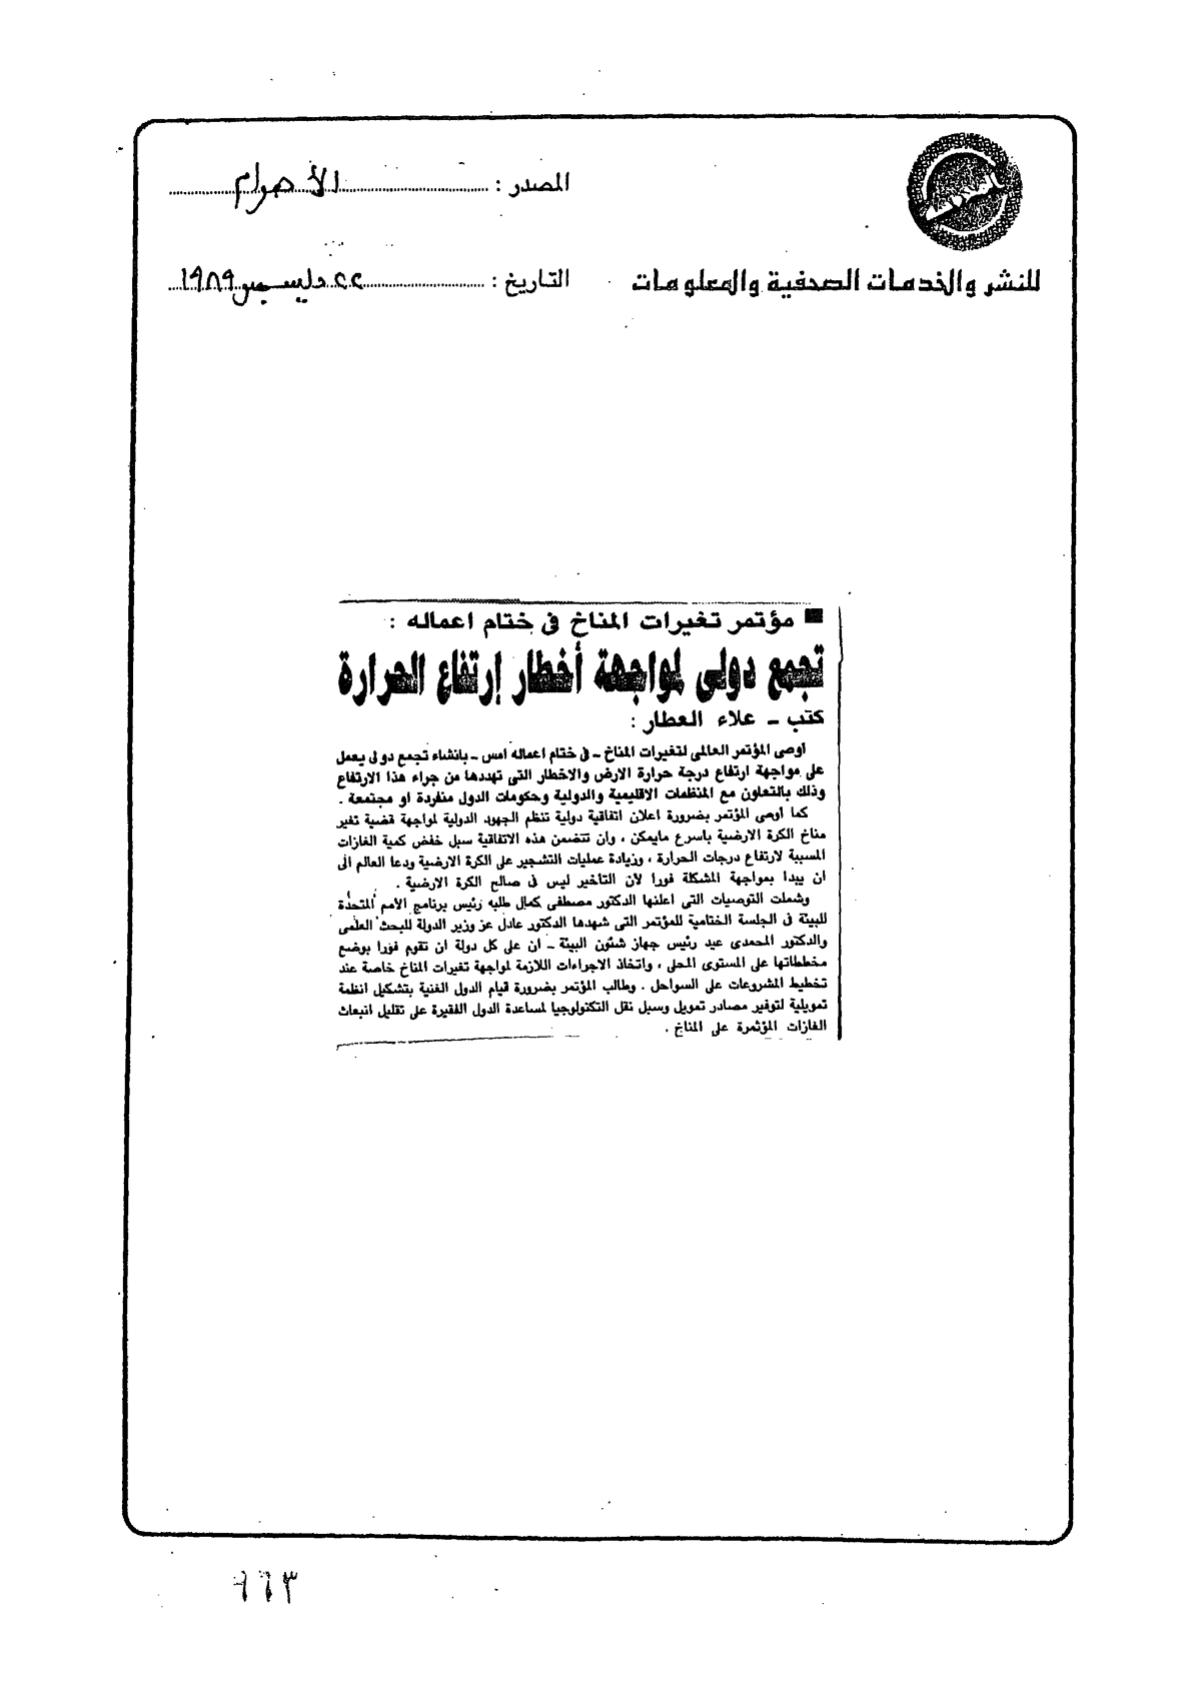 المصدر : الأهرام
للنشر والخدمات الصحفية والمعلومات
التاريخ : ٢٢ ديسمبر ١٩٨٩
■ مؤتمر تغيرات المناخ فى ختام اعماله :
تجمع دولى لمواجهة أخطار إرتفاع الحرارة
كتب - علاء العطار :
اوصى المؤتمر العالمى لتغيرات المناخ - فى ختام اعماله امس - بانشاء تجمع دولى يعمل
على مواجهة ارتفاع درجة حرارة الارض والاخطار التى تهددها من جراء هذا الارتفاع
وذلك بالتعاون مع المنظمات الاقليمية والدولية وحكومات الدول منفردة او مجتمعة .
كما أوصى المؤتمر بضرورة اعلان اتفاقية دولية تنظم الجهود الدولية لمواجهة قضية تغير
مناخ الكرة الارضية باسرع مايمكن ، وان تتضمن هذه الاتفاقية سبل خفض كمية الغازات
المسببة لارتفاع درجات الحرارة ، وزيادة عمليات التشجير على الكرة الارضية ودعا العالم الى
ان يبدا بمواجهة المشكلة فورا لأن التأخير ليس فى صالح الكرة الارضية .
وشملت التوصيات التى اعلنها الدكتور مصطفى كمال طلبه رئيس برنامج الأمم المتحدة
للبيئة فى الجلسة الختامية للمؤتمر التى شهدها الدكتور عادل عز وزير الدولة للبحث العلمى
والدكتور المحمدى عيد رئيس جهاز شئون البيئة - ان على كل دولة ان تقوم فورا بوضع
مخططاتها على المستوى المحلى ، واتخاذ الاجراءات اللازمة لمواجهة تغيرات المناخ خاصة عند
تخطيط المشروعات على السواحل . وطالب المؤتمر بضرورة قيام الدول الغنية بتشكيل انظمة
تمويلية لتوفير مصادر تمويل وسبل نقل التكنولوجيا لمساعدة الدول الفقيرة على تقليل انبعاث
الغازات المؤثمرة على المناخ .